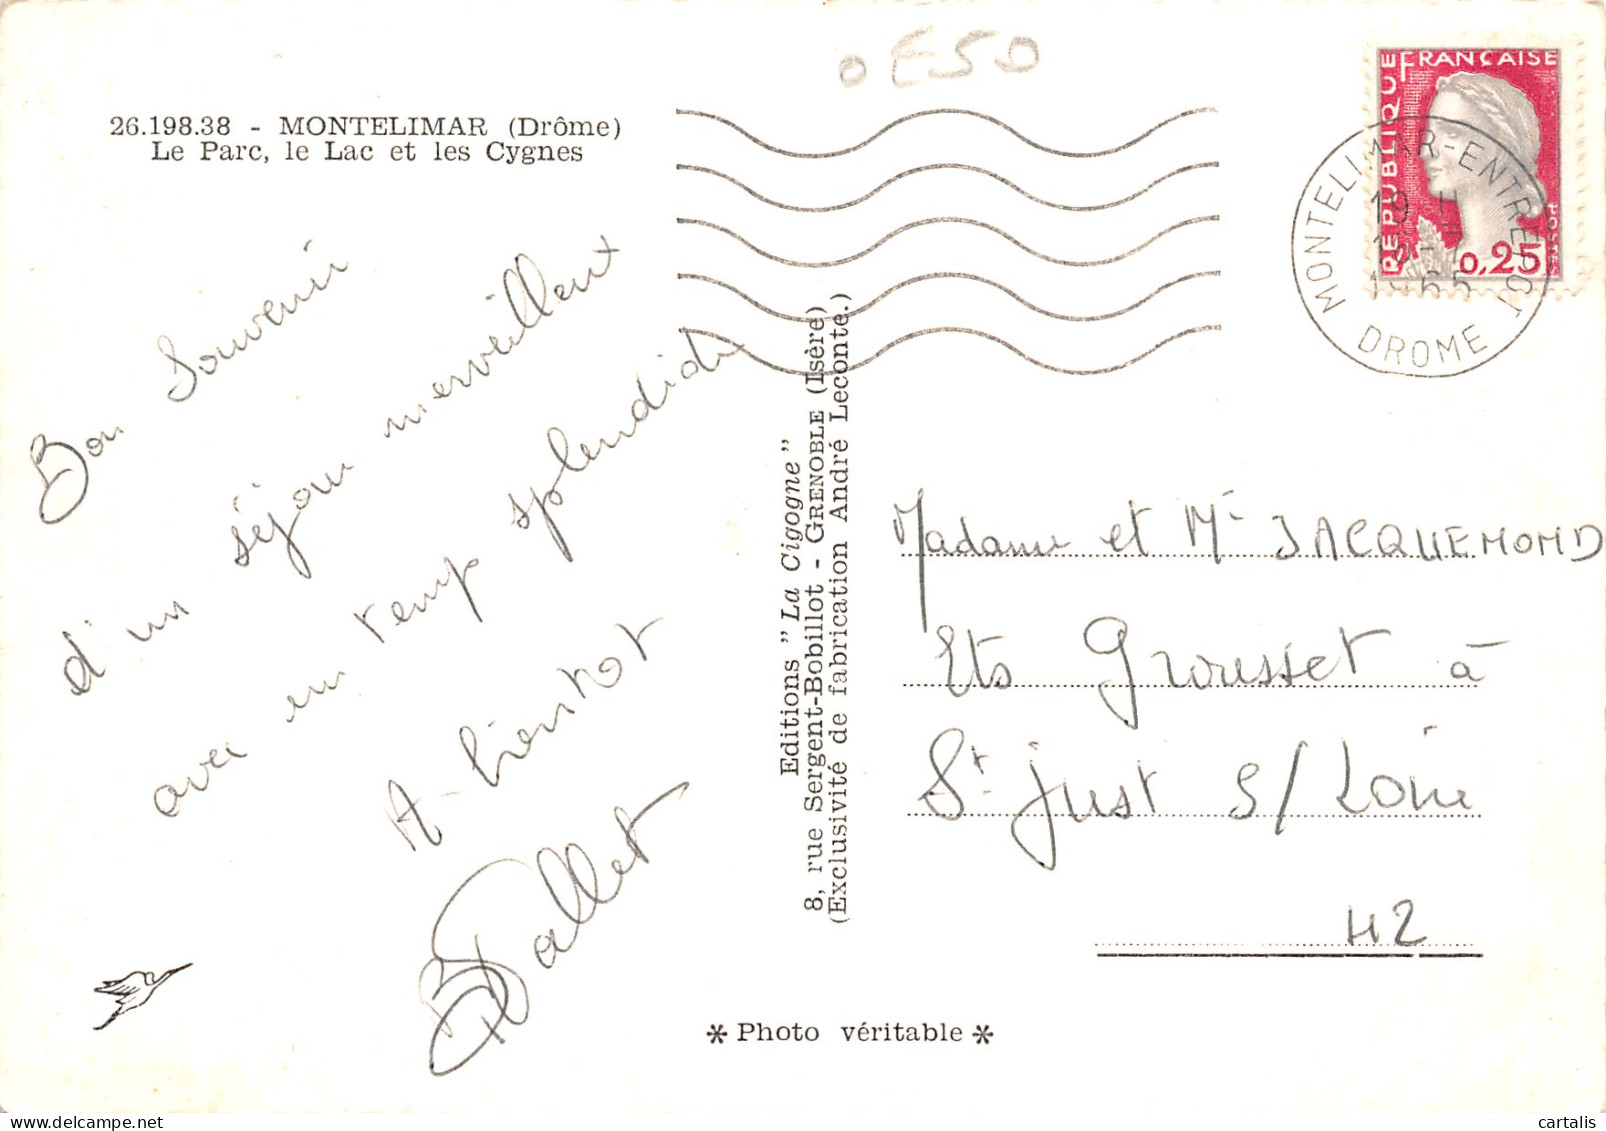 0E50
26.198.38 - MONTELIMAR (Drôme)
Le Parc, le Lac et les Cygnes
RÉPUBLIQUE FRANÇAISE
POSTES
0,25
MONTELIMAR-ENTREPOT
DROME
19 H
1965
Bon Souvenir
d'un séjour merveilleux
avec un temps splendide
A bientot
Editions "La Cigogne"
8, rue Sergent-Bobillot - GRENOBLE (Isère)
(Exclusivité de fabrication André Leconte.)
Madame et Mr JACQUEMOND
Ets Grousset à
St just S/ Loire
42
* Photo véritable *
cartalis